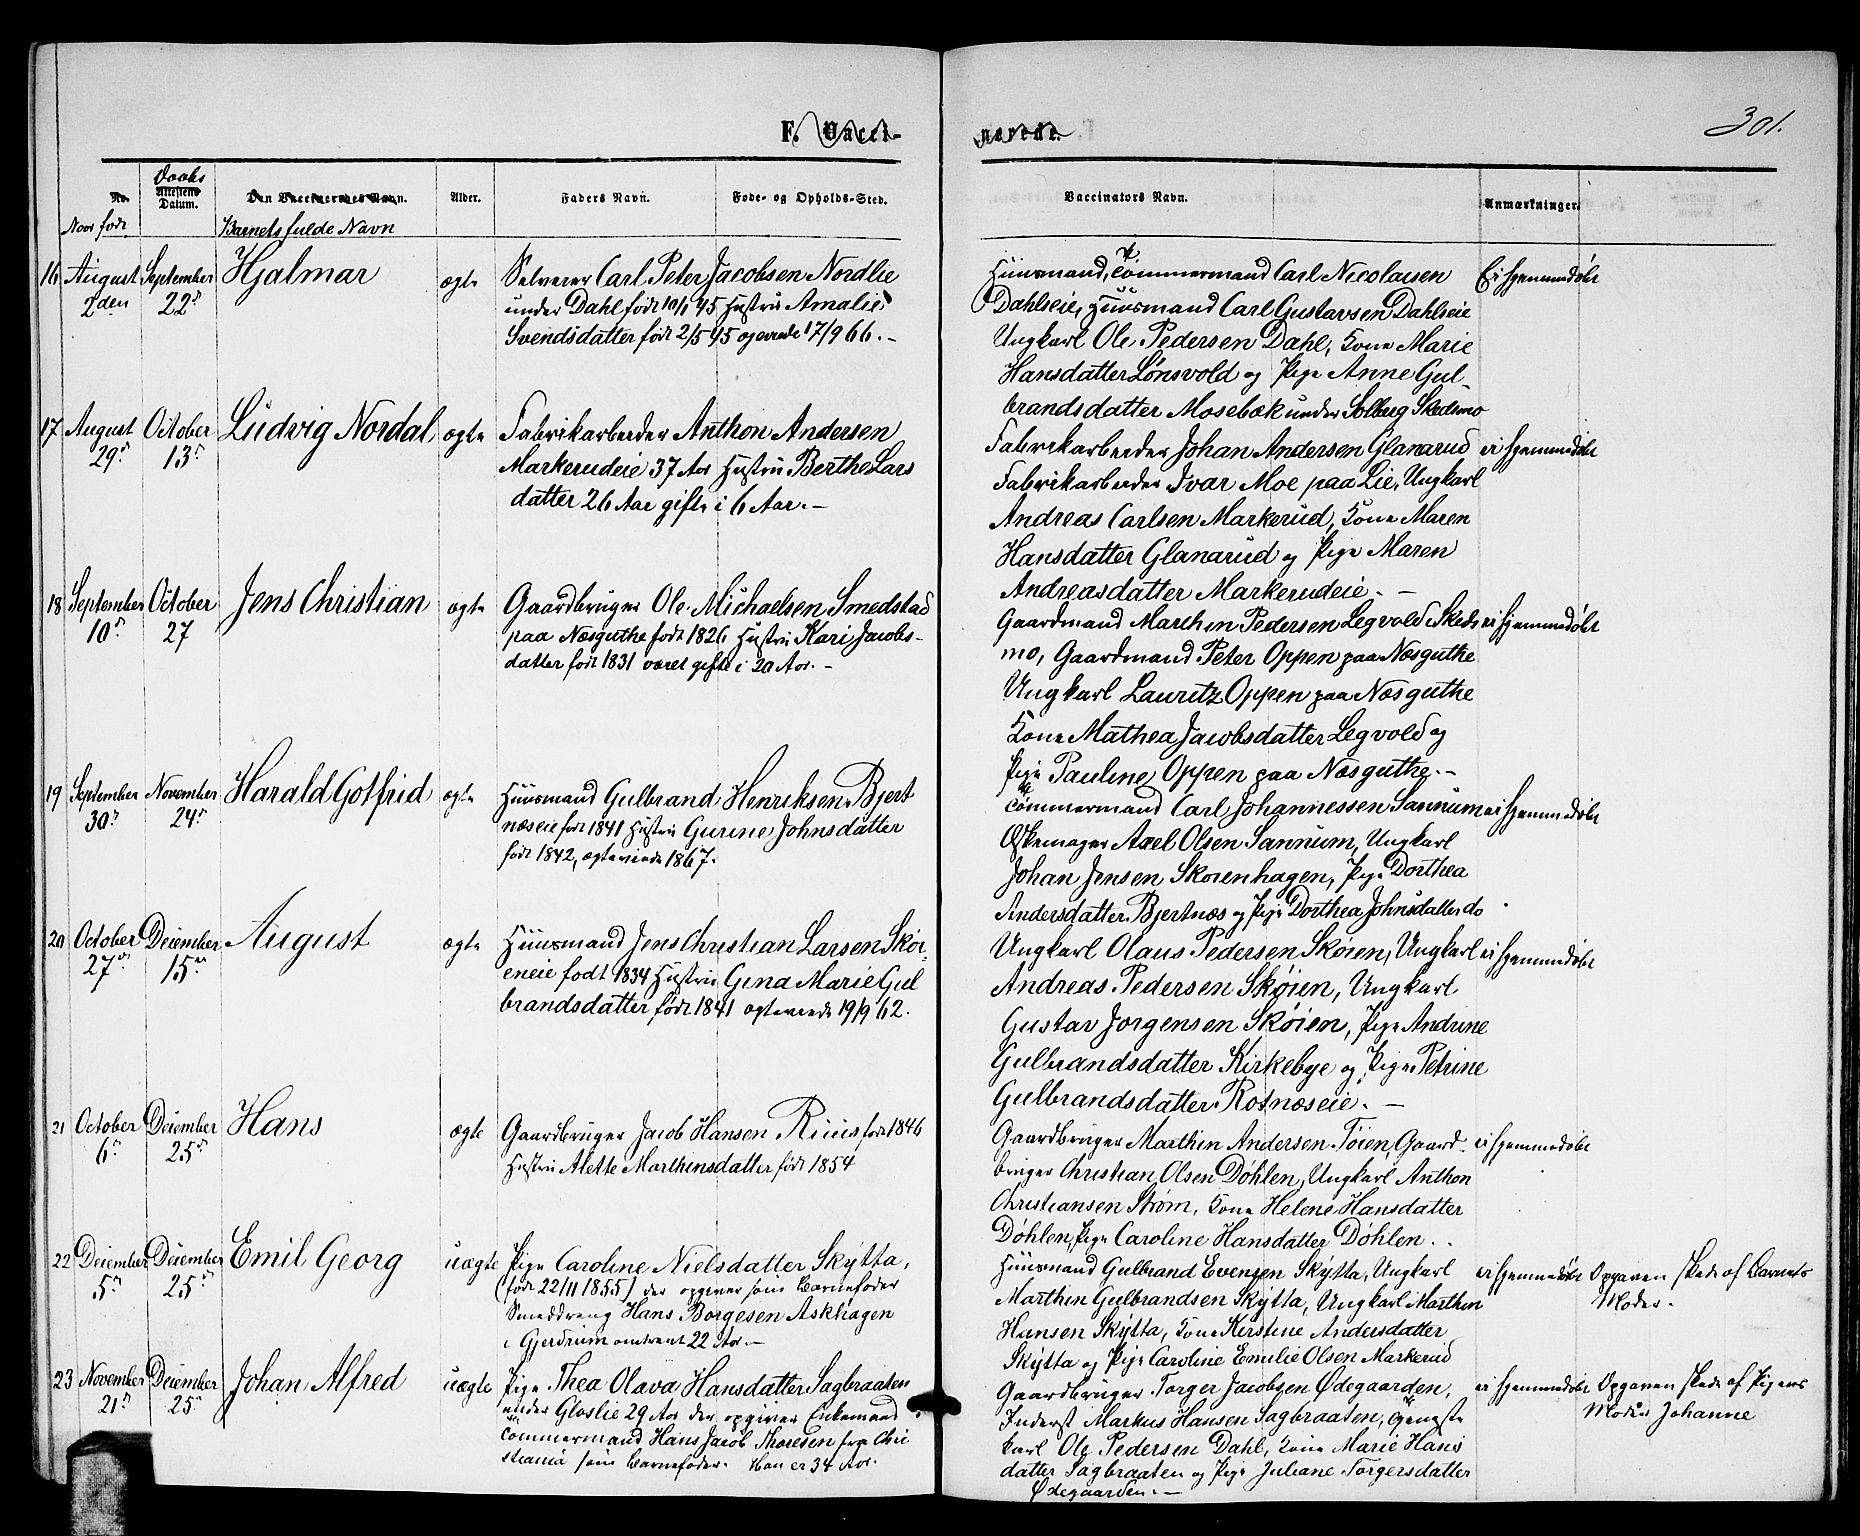 301.
F. Vacci-
nerede.
No.
Daabs
Attestens
Datum.
Den Vaccineredes Navn.
Alder.
Faders Navn.
Føde- og Opholds-Sted.
Vaccinators Navn.
Anmærkninger.
Naar født
Barnets fulde Navn
16 August 2den September 22de Hjalmar ægte
Selveier Carl Peter Jacobsen Nordlie
under Dahl født 10/1 45 Hustru Amalie
Svendsdatter født 2/5 45 egteviede 17/9 66.-
Huusmand, Tømmermand Carl Nicolaisen
Dahlseie, Huusmand Carl Gustavsen Dahlseie
Ungkarl Ole Pedersen Dahl, Kone Marie
Hansdatter Lønsvold og Pige Anne Gul-
brandsdatter Mosebæk under Solberg Skedsmo
Ei hjemmedøbt
17 August 29de October 13de Ludvig Nordal ægte
Fabrikarbeider Anthon Andersen
Markerudeie 37 Aar Hustru Berthe Lars
datter 26 Aar gifte i 6 Aar.-
Fabrikarbeider Johan Andersen Glanerud
Fabrikarbeider Ivar Moe paa Lie, Ungkarl
Andreas Carlsen Markerud, Kone Maren
Hansdatter Glanerud og Pige Maren
Andreasdatter Markerudeie. -
ei hjemmedøbt
18 September 10de October 27 Jens Christian ægte
Gaardbruger Ole Michaelsen Smedstad
paa Næsguthe født 1826 Hustru Kari Jacobs-
datter født 1831 været gifte i 20 Aar.-
Gaardmand Marthin Pedersen Legvold i Skeds
mo, Gaardmand Peter Oppen paa Næsguthe
Ungkarl Lauritz Oppen paa Næsguthe
Kone Mathea Jacobsdatter Legvold og
Pige Pauline Oppen paa Næsguthe.-
ei hjemmedøbt
19 September 30de November 24de Harald Gotfried ægte
Huusmand Gulbrand Henriksen Bjert
næseie født 1841 Hustru Gurine Johnsdatter
født 1842, ægteviede 1867.
Tømmermand Carl Johannessen Sannum
Æskemager Axel Olsen Sannum, Ungkarl
Johan Jensen Skorenhagen, Pige Dorthea
Andersdatter Bjertnæs og Pige Dorthea Johnsdatter do
ei hjemmedøbt
20 October 27de December 15de August ægte
Huusmand Jens Christian Larsen Skør-
eneie født 1834 Hustru Gina Marie Gul
brandsdatter født 1841 ægteviede 19/9 62.
Ungkarl Olaus Pedersen Skøien, Ungkarl
Andreas Pedersen Skøien, Ungkarl
Gustav Jorgensen Skøien, Pige Andrine
Gulbrandsdatter Kirkebye og Pige Petrine
Gulbrandsdatter Rotnæseie. -
ei hjemmedøbt
21 October 6te December 25de Hans ægte
Gaardbruger Jacob Hansen Ruus født 1846
Hustru Alette Marthinsdatter født 1854
Gaardbruger Marthin Andersen Tøien, Gaard-
bruger Christian Olsen Døhlen, Ungkarl Anthon
Christiansen Strøm, Kone Helene Hansdatter
Døhlen, Pige Caroline Hansdatter Døhlen.
ei hjemmedøbt
22 December 5te December 25de Emil Georg uægte
Pige Caroline Nielsdatter Skytta,
(født 22/11 1855) der opgiver som Barnefader
Smeddreng Hans Borgesen Askhagen
i Gjerdrum omtrent 22 Aar.-
Huusmand Gulbrand Evensen Skytta, Ungkarl
Marthin Gulbrandsen Skytta, Ungkarl Marthin
Hansen Skytta, Kone Kirstine Andersdatter
Skytta og Pige Caroline Emilie Olsen Markerud
ei hjemmedøbt
Opgaven skede af Barnets
Moder.
23 November 21de December 25 Johan Alfred uægte
Pige Thea Olava Hansdatter Sagbraaten
under Gloslie 29 Aar der opgiver Enkemand
Tømmermand Hans Jacob Thoresen fra Chri
stiania som Barnefader. Han er 34 Aar.
Gaardbruger Torger Jacobsen Ødegaarden,
Inderst Markus Hansen Sagbraaten, Ungeste
karl Ole Pedersen Dahl, Kone Marie Hans
datter Sagbraaten og Pige Juliane Torgersdatter
Ødegaarden.-
ei hjemmedøbt
Opgaven skede af Pigens
Moder Johanne